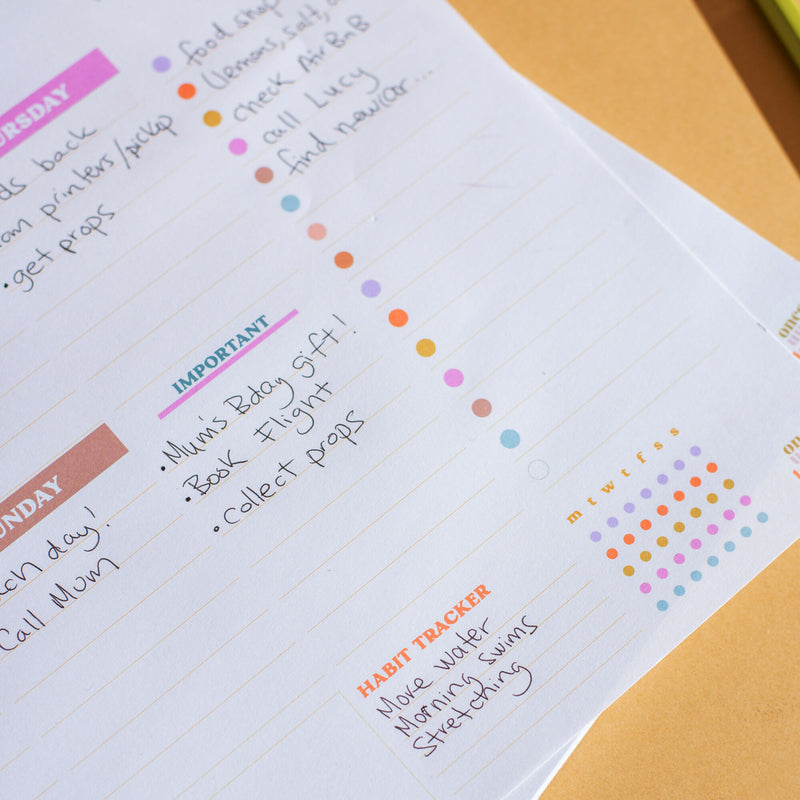 food shop
(lemons, salt,
check AirBnB
call Lucy
find new car...
URSDAY
ds back
printers/pickup
•get props
IMPORTANT
•Mum's Bday gift!
•Book Flight
•Collect props
UNDAY
day!
Call Mum
m t w t f s s
HABIT TRACKER
More water
Morning swims
Stretching